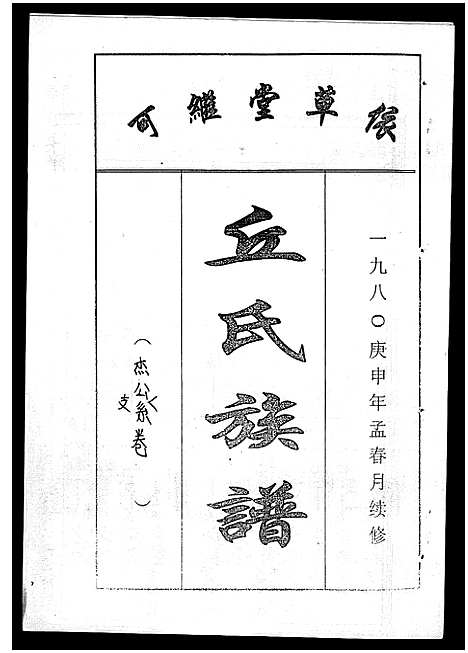 草堂繼可
一九八〇庚申年孟春月续修
丘氏族譜
（杰公支系卷）